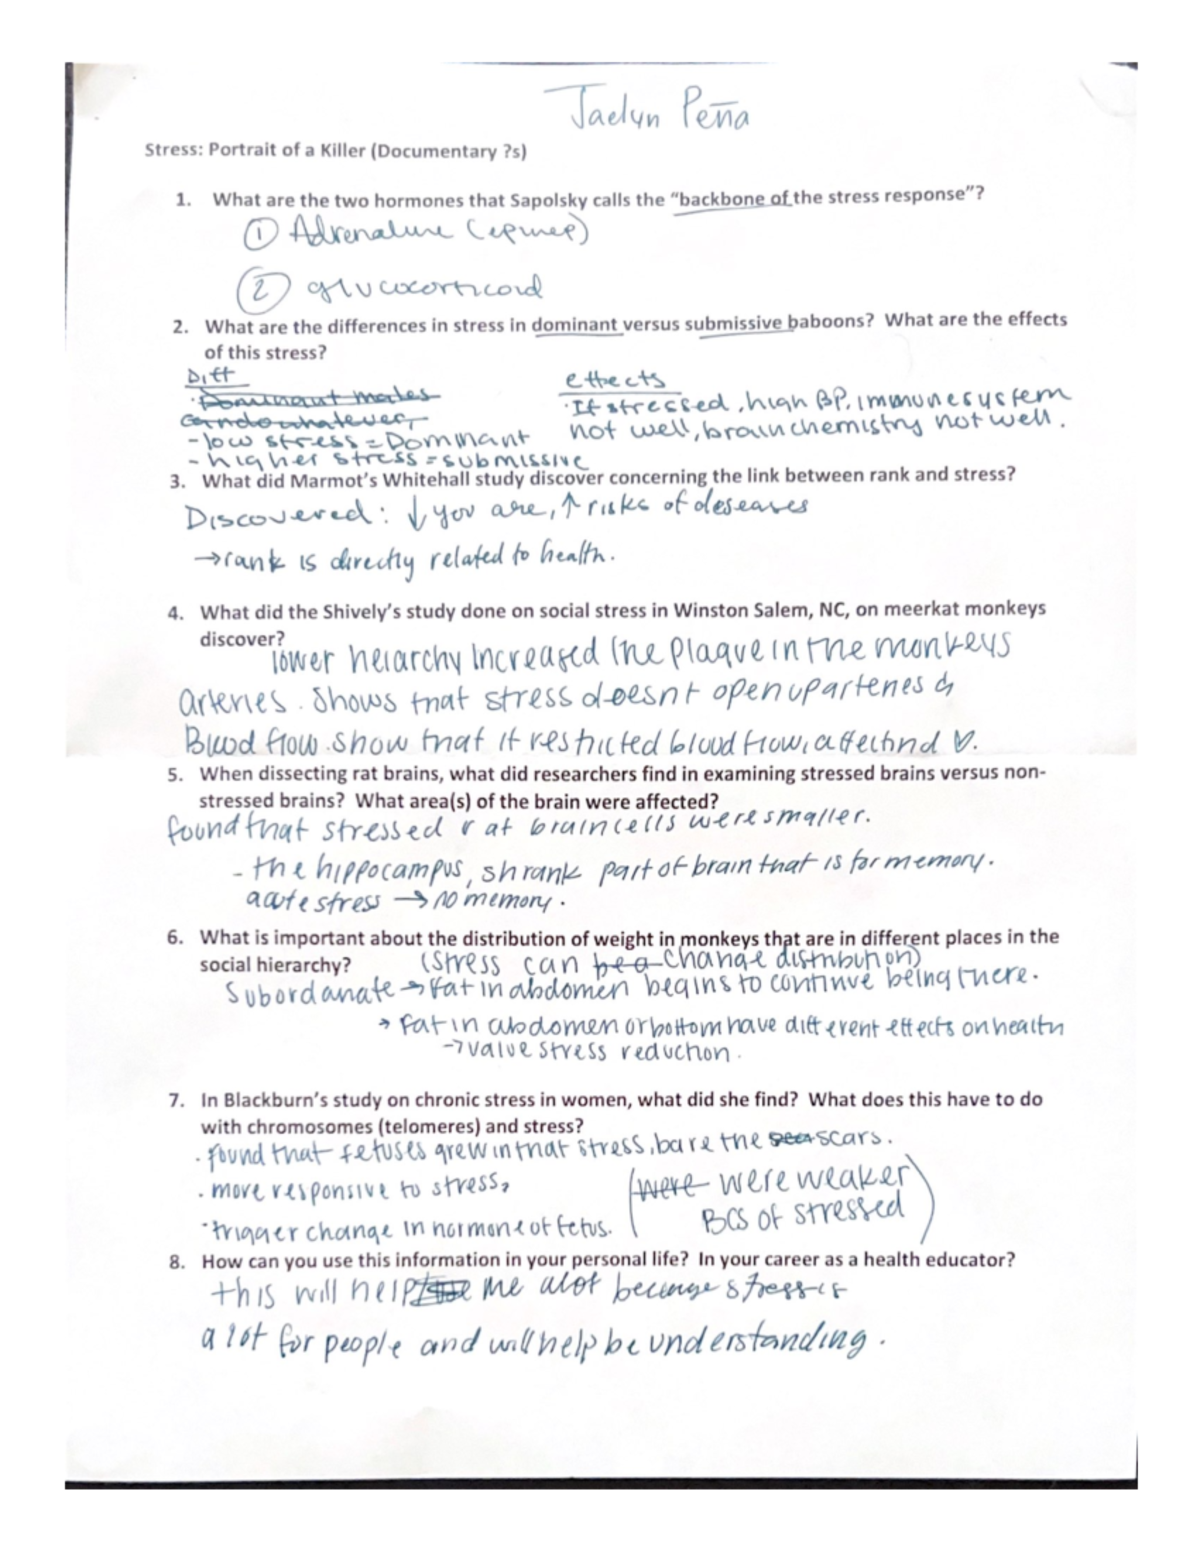 Jaelyn Peña
Stress: Portrait of a Killer (Documentary ?s)
1. What are the two hormones that Sapolsky calls the "backbone of the stress response"?
① Adrenaline (epinep)
② glucocorticoid
2. What are the differences in stress in dominant versus submissive baboons? What are the effects
of this stress?
Diff
· Dominant males
can do whatever,
- low stress = Dominant
- higher stress = submissive
effects
· If stressed, high BP, immune system
not well, brain chemistry not well.
3. What did Marmot's Whitehall study discover concerning the link between rank and stress?
Discovered: ↓ you are, ↑ risks of deseases
→ rank is directly related to health.
4. What did the Shively's study done on social stress in Winston Salem, NC, on meerkat monkeys
discover?
lower heiarchy increased the plaque in the monkeys
arteries. Shows that stress doesnt open up arteries &
Blood flow. show that it restricted blood flow, affectind ♡.
5. When dissecting rat brains, what did researchers find in examining stressed brains versus non-
stressed brains? What area(s) of the brain were affected?
found that stressed rat brain cells were smaller.
- the hippocampus, shrank part of brain that is for memory.
acute stress → no memory.
6. What is important about the distribution of weight in monkeys that are in different places in the
social hierarchy?
(stress can be a change distribution)
Subordanate → fat in abdomen begins to continue being there.
→ fat in abdomen or bottom have different effects on health
→ value stress reduction.
7. In Blackburn's study on chronic stress in women, what did she find? What does this have to do
with chromosomes (telomeres) and stress?
· found that fetuses grew in that stress, bare the scars.
· more responsive to stress,
· trigger change in hormone of fetus.
(were were weaker
BCS of stressed)
8. How can you use this information in your personal life? In your career as a health educator?
this will help me alot because stress is
a lot for people and will help be understanding.